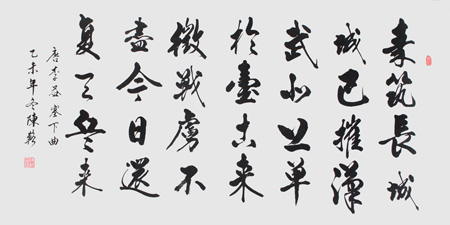 秦筑長城
城已摧漢
武北上單
於臺古来
徵戰虜不
盡今日還
复天兵来
唐李益塞下曲
乙未年冬陳